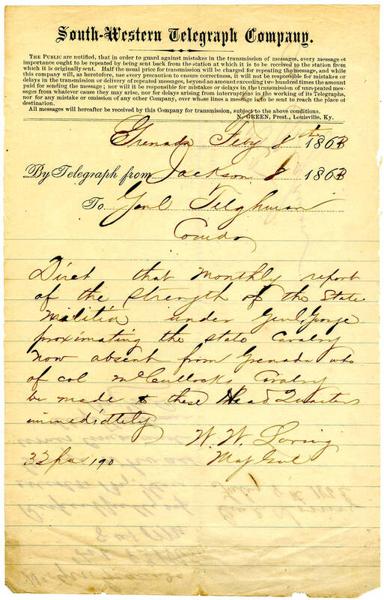 South-Western Telegraph Company.
The Public are notified, that in order to guard against mistakes in the transmission of messages, every message of
importance ought to be repeated by being sent back from the station at which it is to be received to the station from
which it is originally sent. Half the usual price for transmission will be charged for repeating the message, and while
this company will, as heretofore, use every precaution to ensure correctness, it will not be responsible for mistakes or
delays in the transmission or delivery of repeated messages, beyond an amount exceeding two hundred times the amount
paid for sending the message; nor will it be responsible for mistakes or delays in the transmission of unrepeated mes-
sages from whatever cause they may arise, nor for delays arising from interruptions in the working of its Telegraphs,
nor for any mistake or omission of any other Company, over whose lines a message is to be sent to reach the place of
destination.
All messages will hereafter be received by this Company for transmission, subject to the above conditions.
N. GREEN, Prest., Louisville, Ky.
Grenada Feby 8th 1863
By Telegraph from Jackson 8 1863
To Genl Tilghman
Comdr
Direct that monthly report
of the strength of the State
Militia under Genl George
proximating the state Cavalry
now absent from Grenada who
of col McCullock Cavalry
be made to these Head Quarters
immidietely
W. W. Loring
Maj Genl
33 pas 190